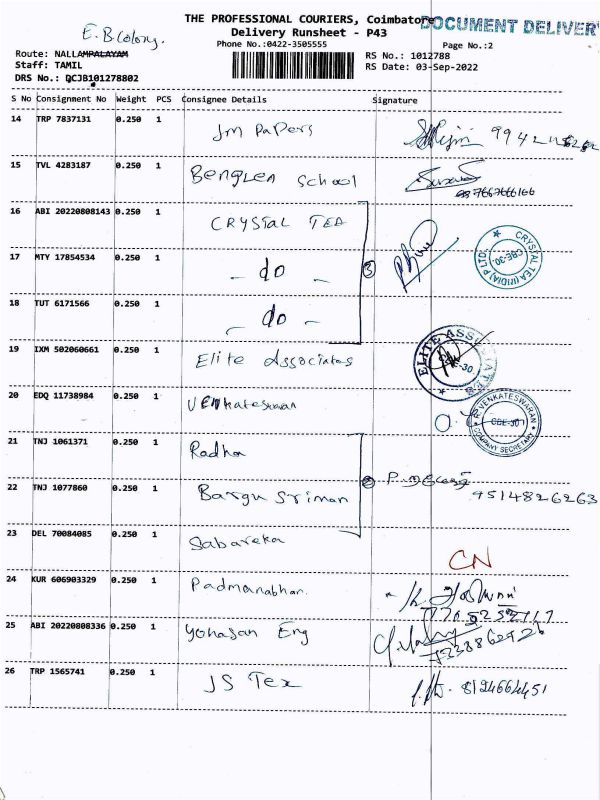 THE PROFESSIONAL COURIERS, Coimbatore
DOCUMENT DELIVERY
E.B Colony.
Delivery Runsheet - P43
Phone No.:0422-3505555
Page No.:2
Route: NALLAMPALAYAM
RS No.: 1012788
Staff: TAMIL
RS Date: 03-Sep-2022
DRS No.: DCJB101278802
S No Consignment No Weight PCS Consignee Details Signature
14 TRP 7837131 0.250 1 Jm Papers
15 TVL 4283187 0.250 1 Benglea School 7667666166
16 ABI 20220808143 0.250 1 CRYSTAL TEA
17 MTY 17854534 0.250 1 - do - 3 CRYSTAL TEA (INDIA) P LTD. CBE-30.
18 TUT 6171566 0.250 1 - do -
19 IXM 502060661 0.250 1 Elite Associates ELITE ASSOCIATES
20 EDQ 11738984 0.250 1 Venkateswaran R.VENKATESWARAN CBE-30 COMPANY SECRETARY
21 TNJ 1061371 0.250 1 Radha
22 TNJ 1077860 0.250 1 Bargu Sriman 2 9514826263
23 DEL 70084085 0.250 1 Sabareka CN
24 KUR 606903329 0.250 1 Padmanabhan.
25 ABI 20220808336 0.250 1 Yohasan Eng
26 TRP 1565741 0.250 1 JS Tex 8124664451